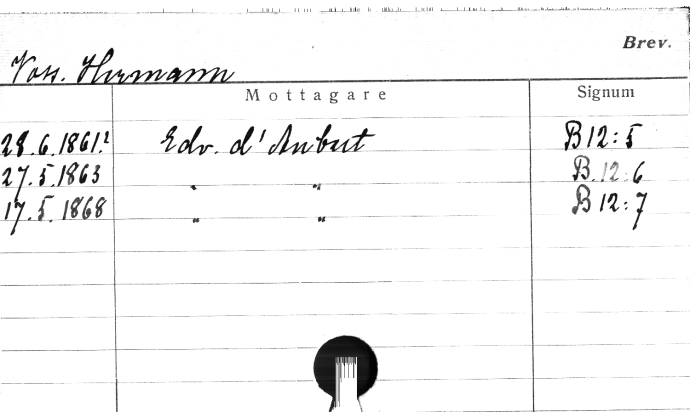 Brev.
Voss. Hermann
Mottagare Signum
28.6.1861.² Edv. d'Aubert B 12:5
27.5.1863 " " B.12:6
17.5.1868 " " B 12:7